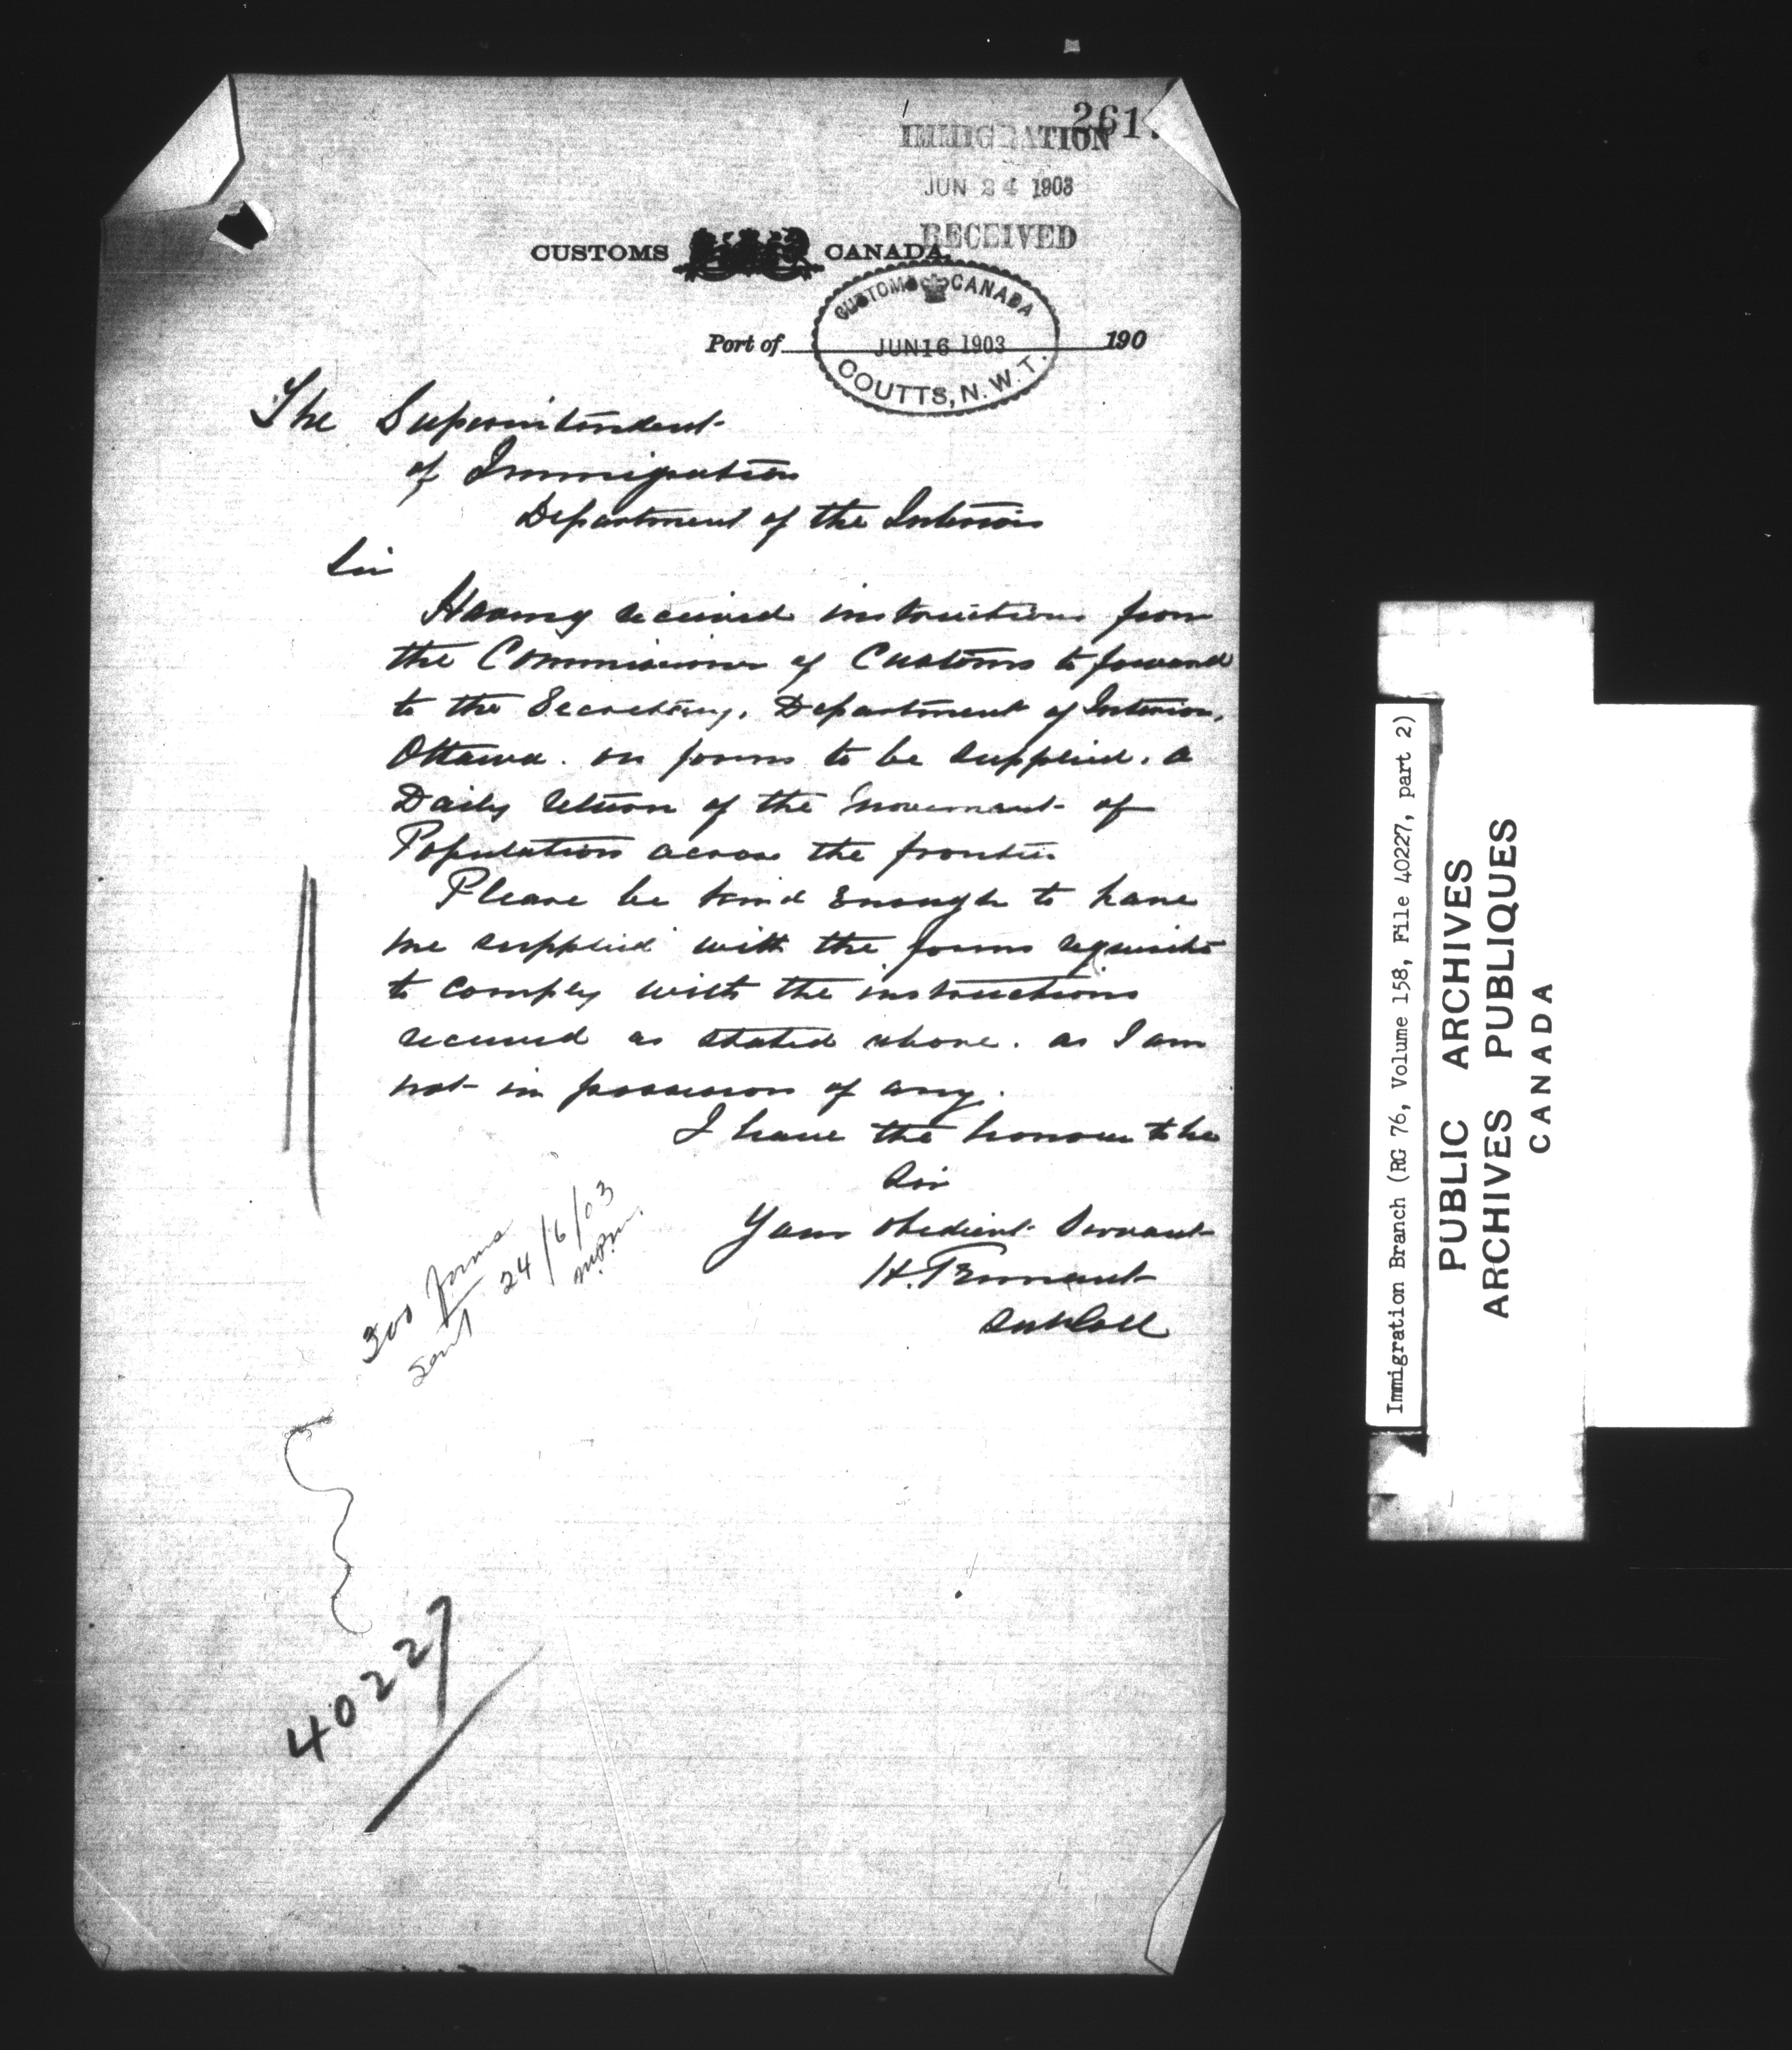 261
IMMIGRATION
JUN 24 1903
RECEIVED
CUSTOMS CANADA.
CUSTOMS CANADA
Port of JUN 16 1903 190
COUTTS, N.W.T.
The Superintendent
of Immigration
Department of the Interior
Sir
Having received instructions from
the Commissioner of Customs to forward
to the Secretary, Department of Interior,
Ottawa. on forms to be supplied, a
Daily return of the movement of
Population across the frontier
Please be kind enough to have
me supplied with the forms requisite
to comply with the instructions
received as stated above. as I am
not in possession of any.
I have the honour to be
Sir
Your obedient Servant
H. Tennant
Sub Coll
300 forms
sent 24/6/03
40227
Immigration Branch (RG 76, Volume 158, File 40227, part 2)
PUBLIC ARCHIVES
ARCHIVES PUBLIQUES
CANADA